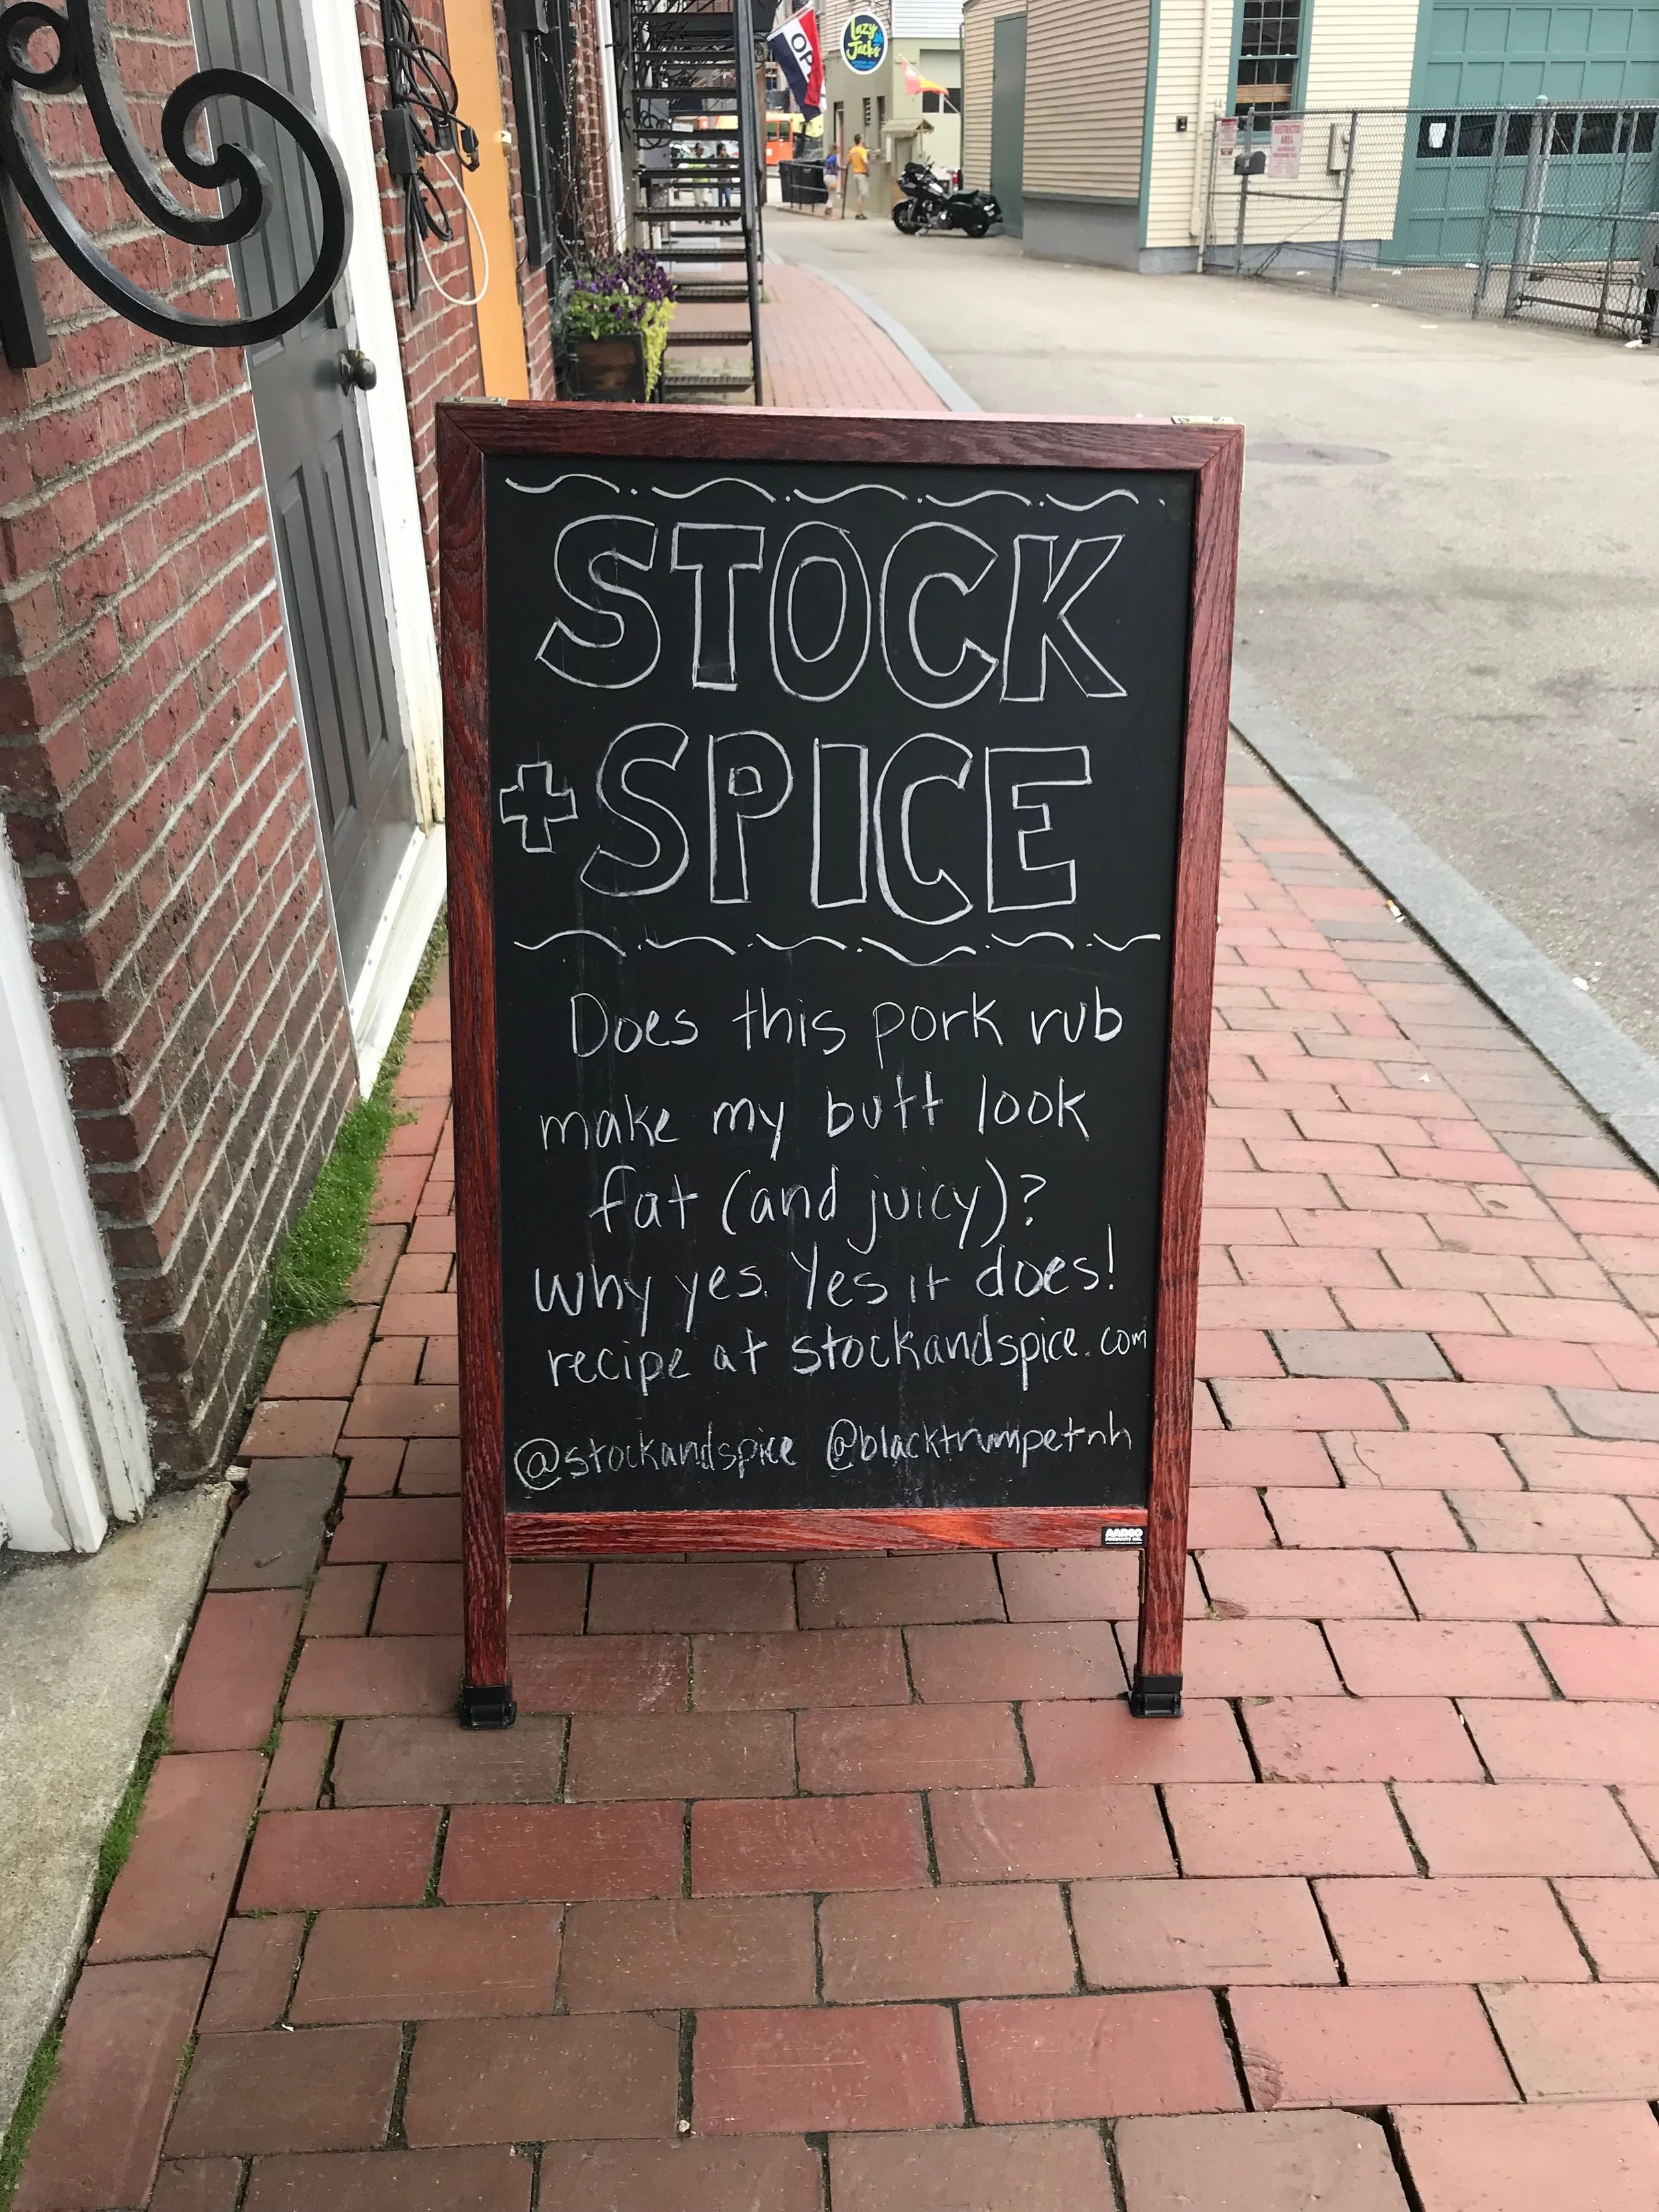 OP
Lazy
Jack's
RESTRICTED
AREA
STOCK
+ SPICE
Does this pork rub
make my butt look
fat (and juicy)?
Why yes. Yes it does!
recipe at stockandspice.com
@stockandspice @blacktrumpetnh
AARCO
PRODUCTS INC.